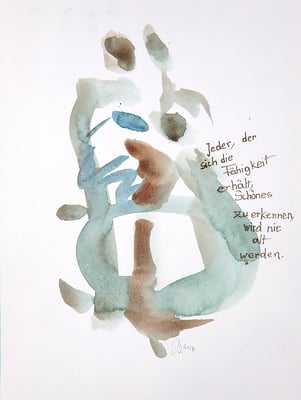 Jeder, der
sich die
Fähigkeit
erhält,
Schönes
zu erkennen,
wird nie
alt
werden.